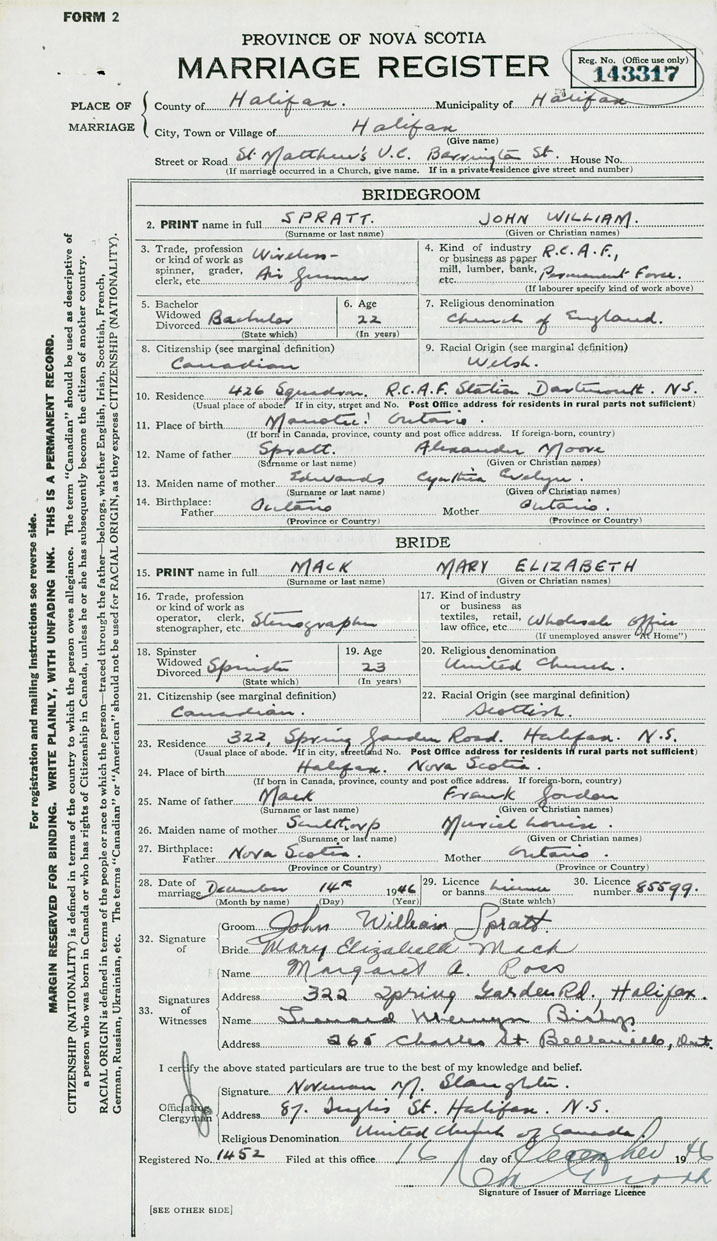 FORM 2
PROVINCE OF NOVA SCOTIA
MARRIAGE REGISTER
Reg. No. (Office use only)
143317
PLACE OF MARRIAGE
County of Halifax. Municipality of Halifax
City, Town or Village of Halifax
(Give name)
Street or Road St. Matthew's U.C. Barrington St. House No.
(If marriage occurred in a Church, give name. If in a private residence give street and number)
BRIDEGROOM
2. PRINT name in full SPRATT. JOHN WILLIAM.
(Surname or last name) (Given or Christian names)
3. Trade, profession or kind of work as spinner, grader, clerk, etc. Wireless- Air Gunner
4. Kind of industry or business as paper mill, lumber, bank, etc. R.C.A.F., Permanent Force.
(If labourer specify kind of work above)
5. Bachelor Widowed Divorced Bachelor
(State which)
6. Age 22
(In years)
7. Religious denomination
Church of England.
8. Citizenship (see marginal definition)
Canadian
9. Racial Origin (see marginal definition)
Welsh.
10. Residence 426 Squadron. R.C.A.F. Station. Dartmouth. N.S.
(Usual place of abode. If in city, street and No. Post Office address for residents in rural parts not sufficient)
11. Place of birth Ontario.
(If born in Canada, province, county and post office address. If foreign-born, country)
12. Name of father Spratt. Alexander Moore
(Surname or last name) (Given or Christian names)
13. Maiden name of mother Edwards Cynthia Evelyn.
(Surname or last name) (Given or Christian names)
14. Birthplace: Father Ontario Mother Ontario.
(Province or Country) (Province or Country)
BRIDE
15. PRINT name in full MACK MARY ELIZABETH
(Surname or last name) (Given or Christian names)
16. Trade, profession or kind of work as operator, clerk, stenographer, etc Stenographer
17. Kind of industry or business as textiles, retail, law office, etc. Wholesale Office
(If unemployed answer "At Home")
18. Spinster Widowed Divorced Spinster
(State which)
19. Age 23
(In years)
20. Religious denomination
United Church.
21. Citizenship (see marginal definition)
Canadian.
22. Racial Origin (see marginal definition)
Scottish.
23. Residence 322, Spring Garden Road. Halifax. N.S.
(Usual place of abode. If in city, street and No. Post Office address for residents in rural parts not sufficient)
24. Place of birth Halifax. Nova Scotia.
(If born in Canada, province, county and post office address. If foreign-born, country)
25. Name of father Mack Frank Gordon
(Surname or last name) (Given or Christian names)
26. Maiden name of mother Sculthorp Muriel Louise.
(Surname or last name) (Given or Christian names)
27. Birthplace: Father Nova Scotia. Mother Ontario.
(Province or Country) (Province or Country)
28. Date of marriage December 14th 1946
(Month by name) (Day) (Year)
29. Licence or banns Licence
(State which)
30. Licence number 85599.
32. Signature of
Groom John William Spratt
Bride Mary Elizabeth Mack
33. Signatures of Witnesses
Name Margaret A. Ross
Address 322 Spring Garden Rd., Halifax.
Name Leonard Mervyn Bishop
Address 265 Charles St. Belleville, Ont.
I certify the above stated particulars are true to the best of my knowledge and belief.
Officiating Clergyman
Signature Norman M. Slaughter.
Address 87. Inglis St. Halifax. N.S.
Religious Denomination United Church of Canada.
Registered No. 1452 Filed at this office 16 day of December 1946
Signature of Issuer of Marriage Licence
[SEE OTHER SIDE]
For registration and mailing Instructions see reverse side.
MARGIN RESERVED FOR BINDING. WRITE PLAINLY, WITH UNFADING INK. THIS IS A PERMANENT RECORD.
CITIZENSHIP (NATIONALITY) is defined in terms of the country to which the person owes allegiance. The term "Canadian" should be used as descriptive of
a person who was born in Canada or who has rights of Citizenship in Canada, unless he or she has subsequently become the citizen of another country.
RACIAL ORIGIN is defined in terms of the people or race to which the person—traced through the father—belongs, whether English, Irish, Scottish, French,
German, Russian, Ukrainian, etc. The terms "Canadian" or "American" should not be used for RACIAL ORIGIN, as they express CITIZENSHIP (NATIONALITY).